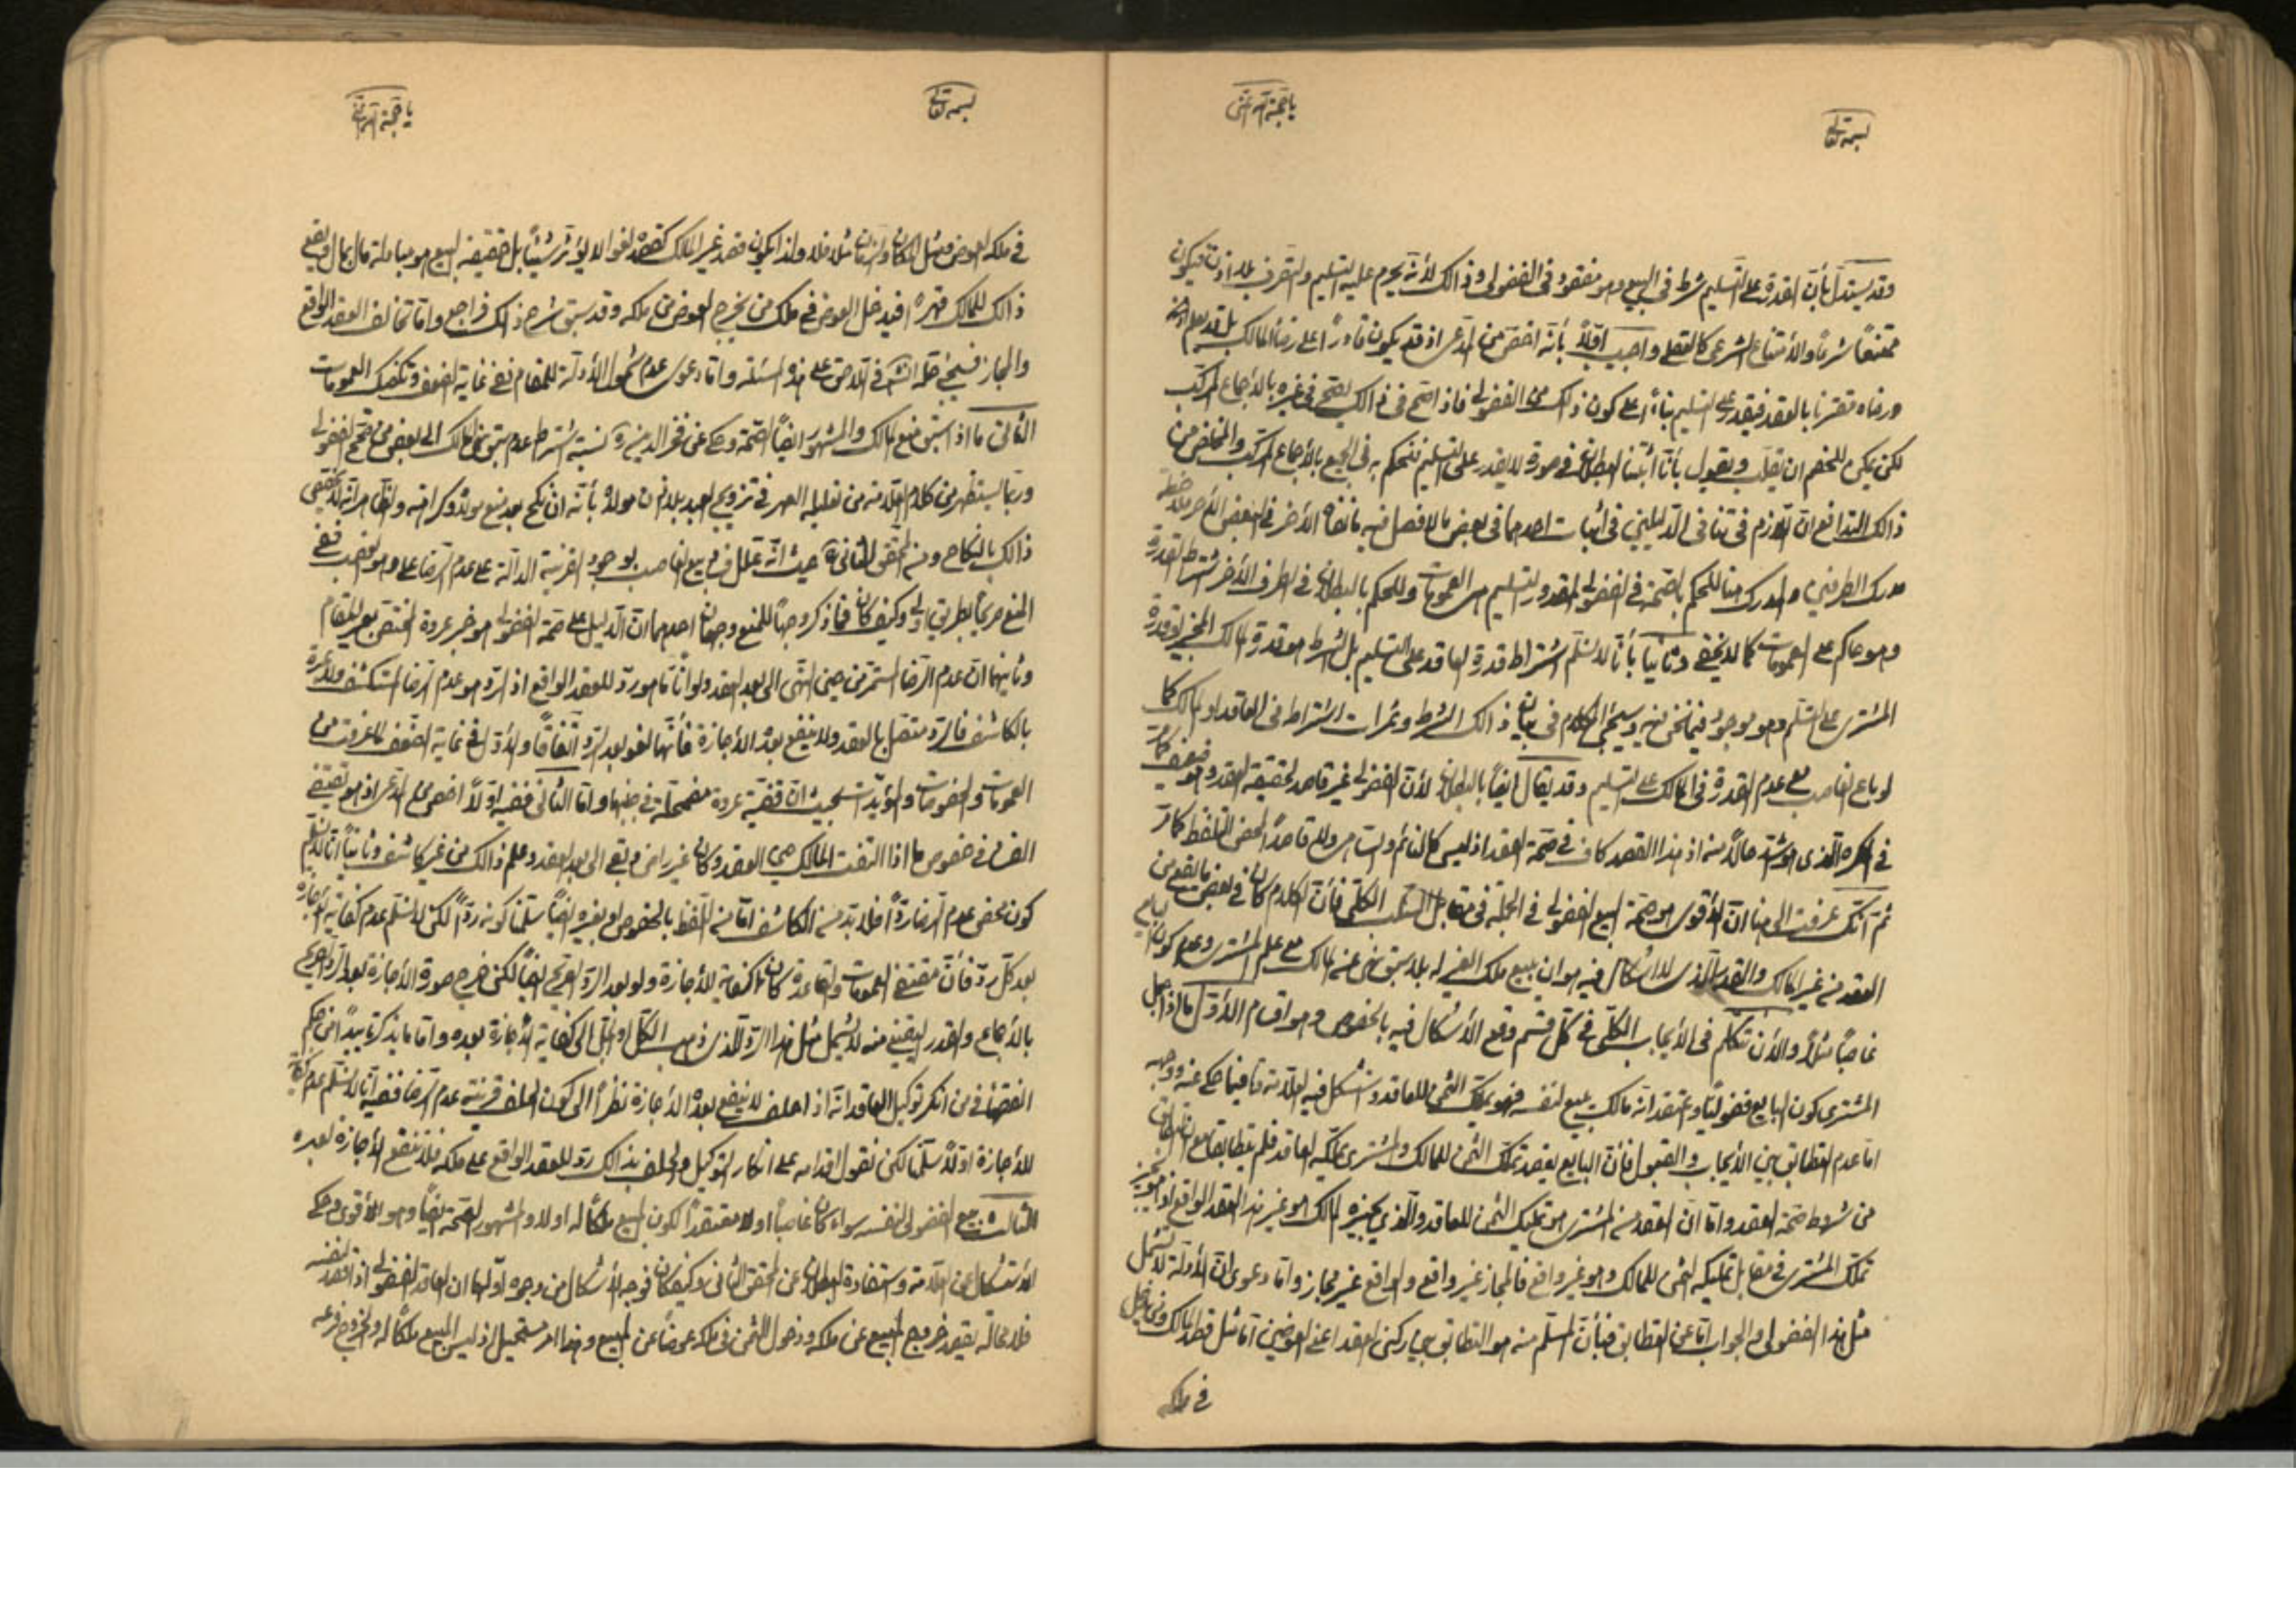 بسمه تعالى
يا حجة الله
وقد يستدل بأن القدرة على التسليم شرط في البيع وهو مفقود في الفضولى وذالك لأنه يحرم عليه التسليم والتصرف بلا اذن فيكون
ممتنعاً شرعاً والأمتناع الشرعى كالعقلى واجيب اولاً بأنه اخص من المدعى اذ قد يكون قادراً على رضا المالك بل قد يعلم
ورضاه مقترنا بالعقد فيقدر على التسليم بناءً على كون ذلك من الفضولى فاذا صح في ذالك يصح في غيره بالأجماع المركب
لكن يمكن للخصم ان يقلب ويقول بأنا أثبتنا البطلان في صورة لا يقدر على التسليم فنحكم به في الجميع بالأجماع المركب والمخلص من
ذالك التدافع ان اللازم في تنافى الدليلين في اثبات احدهما في بعض ما لا فصل فيه ما نفاه الأخر في البعض الأخر ملاحظة
مدرك الطرفين والمدرك هنا للحكم بالصحة في الفضولى المقدور التسليم هى العمومات وللحكم بالبطلان في الطرف الأخر اشتراط القدرة
وهو حاكم على العمومات كما لا يخفى وثانيا بأنا لا نسلم اشتراط قدرة العاقد على التسليم بل الشرط هو قدرة المالك المجيز او قدرة
المشترى على التسلم وهو موجود فيما نحن فيه وسيجئ الكلام في بيان ذالك الشرط وثمرات اشتراط في العاقد او المالك كما
لو باع الغاصب مع عدم القدرة في المالك على التسليم وقد يقال ايضاً بالبطلان لأن الفضولى غير قاصد لحقيقة العقد وهو ضعيف كما مر
في المكره الذى هو اشد حالاً منه اذ هذا القصد كاف في صحة العقد اذ ليس كالنائم والساهى ولا قاصداً لمحض التلفظ كما مر
ثم انك عرفت الى هنا ان الأقوى هو صحة البيع الفضولى في الجملة في مقابل السلب الكلى فأن الكلام كان في بعض ما يقع من
العقد من غير المالك والقدر الذى لا اشكال فيه هو ان يبيع ملك الغير له بلا سبق نهى عنه المالك مع علم المشترى وعدم كون البايع
غاصباً مثلاً والأن نتكلم في الأيجاب الكلى في كل قسم وقع الأشكال فيه بالخصوص وهو اقسام الأول ما اذا جهل
المشترى كون البايع فضولياً ويعتقد انه مالك يبيع لنفسه فهو يملك الثمن للعاقد واستشكل فيه العلامة فيما حكى عنه ووجهه
اما عدم التطابق بين الأيجاب والقبول فأن البايع يقصد تملك الثمن للمالك والمشترى يملكه العاقد فلم يتطابقا مع ان التطابق
من شروط صحة العقد واما ان العقد من المشترى هو تمليك الثمن للعاقد والذى يجيزه المالك هو غير هذا العقد الواقع اذ هو يجيز
تملك المشترى في مقابل تمليكه الثمن للمالك وهو غير واقع فالمجاز غير واقع والواقع غير مجاز واما دعوى ان الأدلة لا تشمل
مثل هذا الفضولى والجواب اما عن التطابق فبأن المسلم منه هو التطابق بين ركنى العقد اعنى العوضين اما مثل قصد المالك ومن يدخل
في ملكه
بسمه تعالى
يا حجة الله
في ملكه العوض ومثل المكان والزمان مثلا فلا ولذا يكون قصد غير المالك كقصده لغوا لا يؤثر شيئاً بل حقيقة البيع هو مبادلة مال بمال ويقع
ذالك للمالك قهراً فيدخل العوض في ملك من يخرج العوض من ملكه وقد سبق شرح ذالك فراجع واما تخالف العقد الواقع
والمجاز فسيجئ حله انشاء في على هذه المسئلة واما دعوى عدم شمول الأدلة للمقام ففى غاية الضعف وتكفيك العمومات
الثانى ما اذا سبق منع المالك والمشهور ايضاً الصحة وحكى عن فخر الدين نسبة اشتراط عدم سبق نهى المالك الى بعض من صحح الفضولى
وربما يستظهر من كلام العلامة من تعليله المهر في تزويج العبد بلا اذن مولاه بأنه ان نكح بعد منع مولاه وكراهته والظاهر انه لا يختص
ذالك بالنكاح ومنه المحقق الثانى حيث انه علل في بيع الغاصب بوجود القرينة الدالة على عدم الرضا على وهو الغصب ففى
المنع صريحاً بطريق اولى وكيف كان فما ذكر وجهاً للمنع وجهان احدهما ان الدليل على صحة الفضولى هو خبر عروة المختص بغير المقام
وثانيهما ان عدم الرضا المستمر من حين النهى الى بعد العقد ولو اناً ما هو رد للعقد الواقع اذ الرد هو عدم الرضا المستكشف ولا عبرة
بالكاشف فالرد متصل بالعقد ولا ينفع بعده الأجازة فأنها لغو بعد الرد اتفاقاً والأول في غاية الضعف لما عرفت من
العمومات والخصوصات والمؤيدات بحيث ان قضية عروة مضمحلة في جنبها واما الثانى ففيه اولاً اخص من المدعى اذ هو يقتضى
الفساد في خصوص ما اذا التفت المالك حين العقد وكان غير راض وبقى الى بعد العقد وعلم ذالك من غير كاشف وثانياً انا لا نسلم
كون محض عدم الرضا رداً فلا بد من الكاشف اما من اللفظ بالخصوص او بغيره ايضاً سلمنا كونه رداً لكن لا نسلم عدم كفاية الأجازة
بعد كل رد فأن مقتضى العمومات والقاعدة كان كفاية للأجازة ولو بعد الرد الصريح ايضاً لكن خرج صورة الأجازة بعد الرد الصريح
بالأجماع والقدر المتيقن منه لا يشمل مثل هذا الرد الذى ذهب الكل او الجل الى كفاية الأجازة بعده واما ما يذكر تأييداً من حكم
الفقهاء في من انكر توكيل العاقد انه اذا حلف لا ينفع بعده الأجازة نظراً الى كون الحلف قرينة عدم الرضا ففيه انا لا نسلم عدم
للأجازة اولاً سلمنا لكن نقول اقدامه على انكار التوكيل والحلف بذالك رد للعقد الواقع على ملكه فلا تنفع الأجازة بعده
الثالث بيع الفضولى لنفسه سواء كان غاصباً اولا معتقداً لكون المبيع ملكاً له اولا والمشهور الصحة ايضاً وهو الأقوى وحكى
الأستشكال عن العلامة واستفادة البطلان عن المحقق الثانى وكيف كان فوجه الأشكال من وجوه اولها ان العاقد الفضولى اذا قصد لنفسه
فلا محالة يقصد خروج المبيع عن ملكه ودخول الثمن في ملكه عوضاً عن المبيع وهذا امر مستحيل اذ ليس المبيع ملكاً له والخروج فرعه